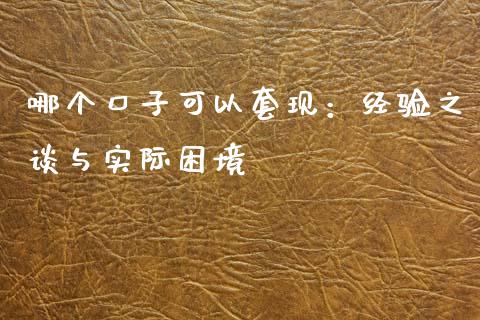 哪个口子可以套现：经验之
谈与实际困境